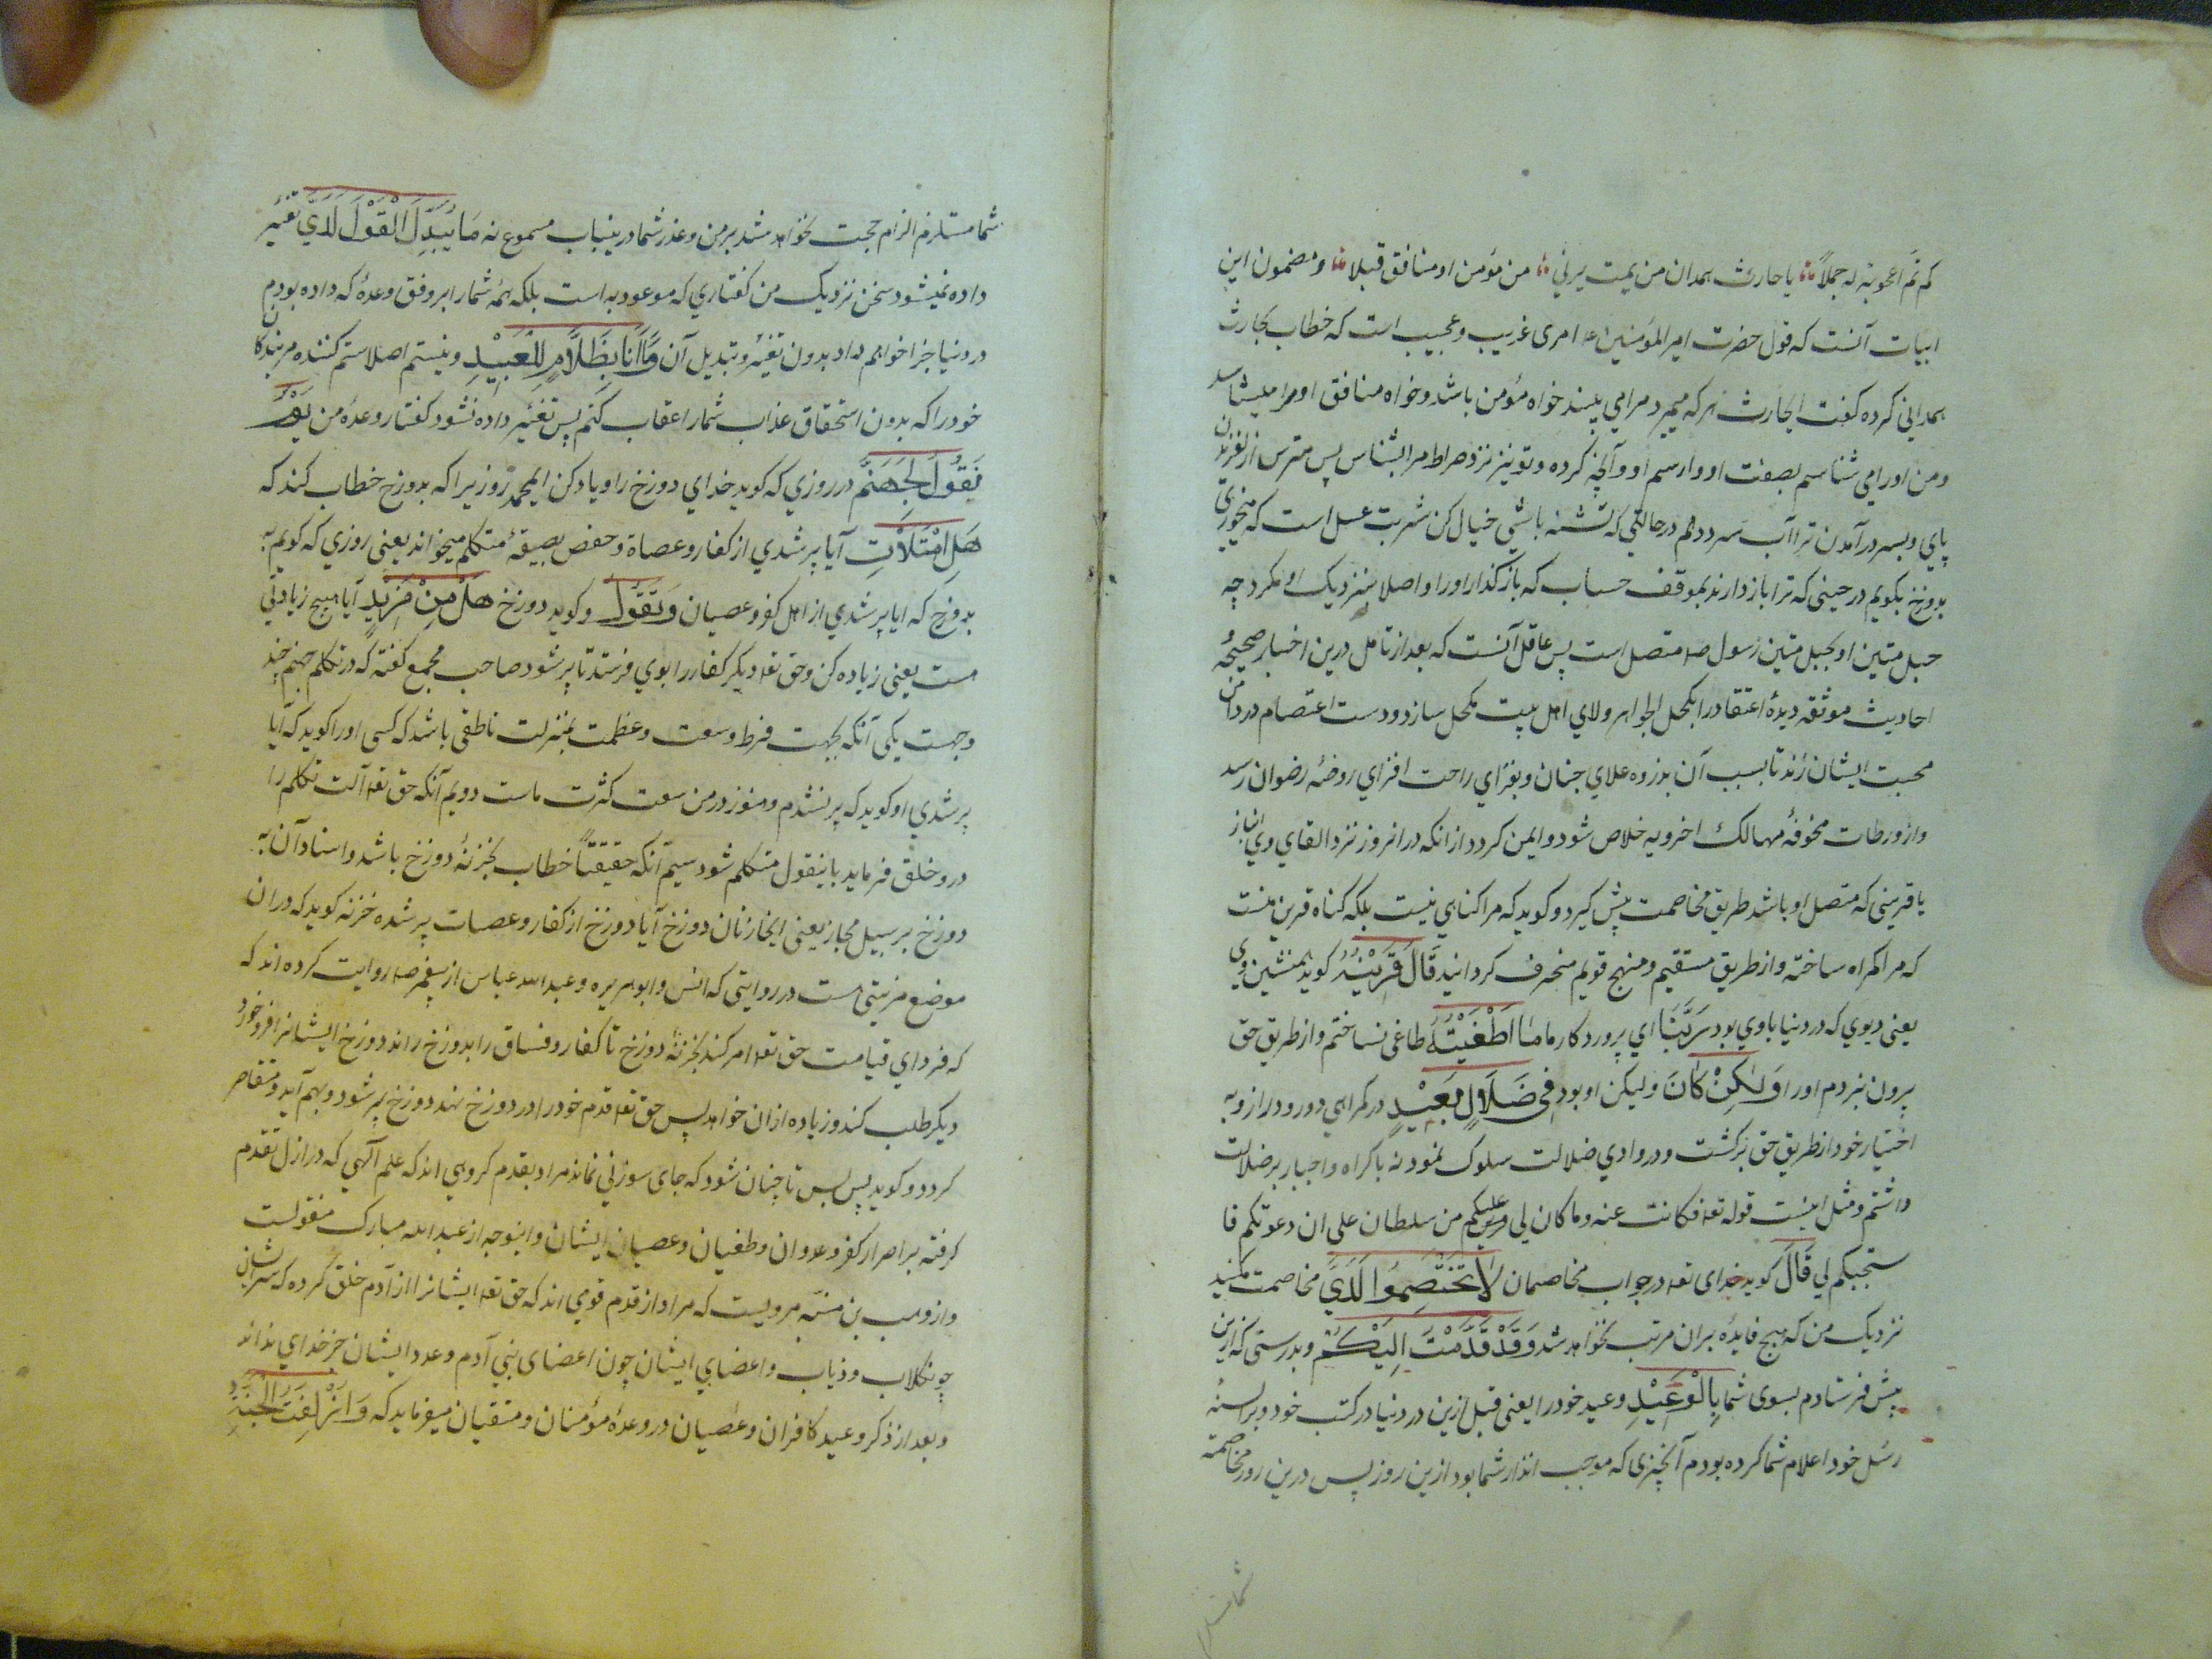 کم ثم اعجوبة له جملاً یا حارث همدان من یمت یرنی من مؤمن او منافق قبلا و مضمون این
ابیات آنست که قول حضرت امیر المؤمنین ع امری غریب و عجیب است که خطاب بحارث
همدانی کرده گفت ایحارث هر که میمیرد مرا می بیند خواه مؤمن باشد و خواه منافق او مرا میشناسد
و من او را می شناسم بصفت او و اسم او و آنچه کرده و تو نیز نزد صراط مرا بشناس پس مترس از لغزیدن
پای و بسر درآمدن ترا آب سرد دهم در حالتی که تشنه باشی خیال کن شربت عسل است که میخوری
بدوزخ بگویم در حینی که ترا باز دارند بموقف حساب که باز گذار او را و اصلا بنزدیک او مگرد چه
حبل متین او بحبل متین رسول ص متصل است پس عاقل آنست که بعد از تامل درین اخبار صحیحه و
احادیث موثقه دیدۀ اعتقاد را بکحل الجواهر ولای اهل بیت مکحل سازد و دست اعتصام در دامن
محبت ایشان زند تا بسبب آن بذروه علای جنان و بفزای راحت افزای روضۀ رضوان رسد
و از ورطات مخوفۀ مهالک اخرویه خلاص شود و ایمن گردد از انکه در انروز نزد القای وی انباز
یا قرینی که متصل او باشد طریق مخاصمت پیش گیرد و گوید که مرا گناهی نیست بلکه گناه قرین منست
که مرا گمراه ساخته و از طریق مستقیم و منهج قویم منحرف گردانید قَالَ قَرِیْنُهُ گوید همنشین وی
یعنی دیوی که در دنیا با وی بود رَبَّنَا ای پروردگار ما مَا اَطْغَیْتُهُ طاغی نساختم و از طریق حق
برون نبردم او را وَلٰکِنْ کَانَ ولیکن او بود فِی ضَلَالٍ بَعِیْدٍ در گمراهی دور و دراز و به
اختیار خود از طریق حق برگشت و در وادی ضلالت سلوک نمود نه باکراه و اجبار بر ضلالت
داشتم و مثل اینست قوله تع فکانت عنه و ما کان لی علیکم من سلطان علی ان دعوتکم فا
ستجبکم لی قَالَ گوید خدای تع در جواب مخاصمان لَا تَخْتَصِمُوا لَدَیَّ مخاصمت مکنید
نزدیک من که هیچ فایده بران مرتب نخواهد شد وَقَدْ قَدَّمْتُ اِلَیْکُمْ و بدرستی که ازین
پیش فرستادم بسوی شما بِالْوَعِیْدِ وعید خود را یعنی قبل ازین در دنیا در کتب خود و بر السنۀ
رسل خود اعلام شما کرده بودم آنچیزی که موجب انذار شما بود ازین روز پس درین روز مخاصمه
شما مستلزم
شما مستلزم الزام حجت نخواهد شد بر من و عذر شما درینباب مسموع نه مَا یُبَدَّلُ الْقَوْلُ لَدَیَّ تغییر
داده نمیشود سخن نزدیک من گفتاری که موعود به است بلکه همۀ شما را بر وفق وعدۀ که داده بودم
در دنیا جزا خواهم داد بدون تغییر و تبدیل آن وَمَا اَنَا بِظَلَّامٍ لِلْعَبِیْدِ و نیستم اصلا ستم کننده مر بندکان
خود را که بدون استحقاق عذاب شما را عقاب کنم پس تغییر داده نشود گفتار و عدۀ من یَوْمَ
نَقُوْلُ لِجَهَنَّمَ در روزی که گوید خدای دوزخ را و یاد کن ایمحمد روزیرا که بدوزخ خطاب کند که
هَلِ امْتَلَأْتِ آیا پر شدی از کفار و عصاة و حفص بصیغۀ متکلم میخواند یعنی روزی که گویم به
دوزخ که ایا پر شدی از اهل کفر و عصیان وَتَقُوْلُ و گوید دوزخ هَلْ مِنْ مَزِیْدٍ آیا هیچ زیادتی
هست یعنی زیاده کن و حق تع دیگر کفار را بوی فرستد تا پر شود صاحب مجمع گفته که در تکلم جهنم چند
وجهست یکی آنکه بجهت فرط وسعت و عظمت بمنزلت ناطقی باشد که کسی او را گوید که آیا
پر شدی او گوید که پر نشدم و هنوز در من سعت کثرت هاست دویم آنکه حق تع آلت تکلم را
در و خلق فرماید باینقول متکلم شود سیم آنکه حقیقتاً خطاب بخزنۀ دوزخ باشد و اسناد آن به
دوزخ بر سبیل مجاز یعنی ایخازنان دوزخ آیا دوزخ از کفار و عصات پر شده خزنه گوید که در ان
موضع مزیتی هست در روایتی که انس و ابو هریره و عبد الله عباس از پیغمبر ص روایت کرده اند که
که فردای قیامت حق تع امر کند بخزنۀ دوزخ تا کفار و فساق را بدوزخ راند دوزخ ایشانرا فرو خورد
دیگر طلب کند و زیاده از ان خواهد پس حق تع قدم خود را در دوزخ نهد دوزخ پر شود و بهم آید و متقاصر
گردد و گوید بس بس تا چنان شود که جای سوزنی نماند مراد بقدم گروهی اند که علم آلهی که در ازل تقدم
گرفته بر اصرار کفر و عدوان و طغیان و عصیان ایشان و اینوجه از عبد الله مبارک منقولست
و از وهب بن منبّه مرویست که مراد از قدم قومی اند که حق تع ایشانرا از آدم خلق کرده که سر ایشان
چو نکلاب و ذیاب و اعضای ایشان چون اعضای بنی آدم و عدد ایشان جز خدای نداند
و بعد از ذکر وعید کافران و عصیان در وعدۀ مؤمنان و متقیان میفرماید که وَاُزْلِفَتِ الْجَنَّةُ